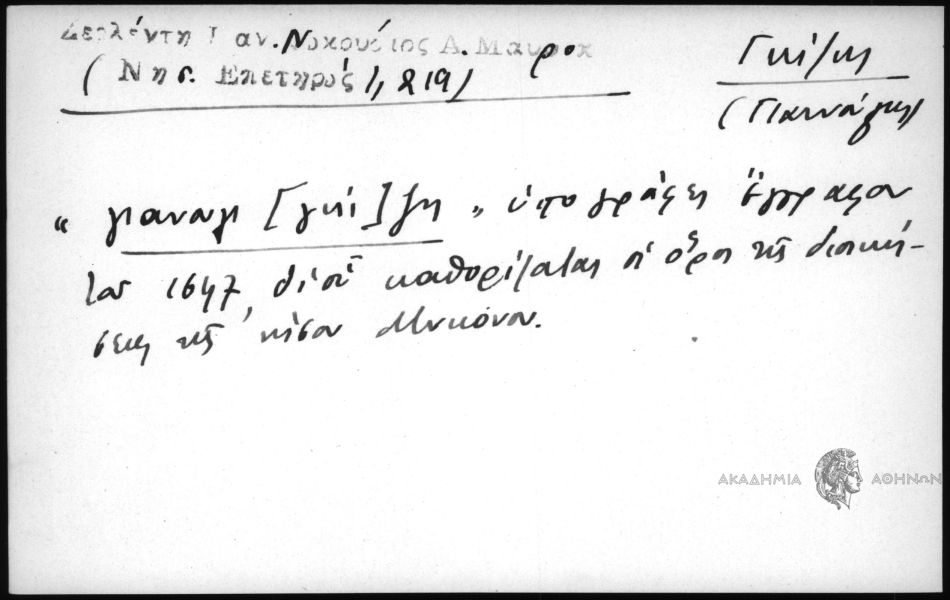 Δερλέντη Ι αν. Νικούσιος Α. Μαυροκ
( Νησ. Επετηρίς 1, 219)
Γκίζης
(Γιαννάκης)
" γιαναγ [γκί]ζη " ὑπογράφει ἔγγραφον
τοῦ 1647, δι' οὗ καθορίζονται οἱ ὅροι τῆς διοική-
σεως τῆς νήσου Μυκόνου.
ΑΚΑΔΗΜΙΑ ΑΘΗΝΩΝ